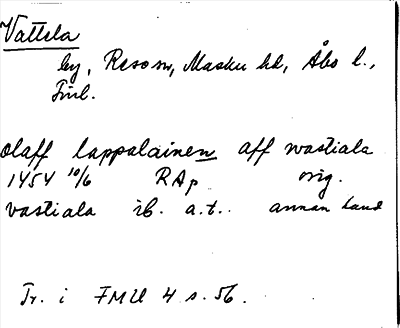 Vattela
by, Reso sn, Masku hd, Åbo l.,
Finl.
olaff lappalainen aff wastiala
1454 10/6 RAp orig.
vastiala ib. a.t.. annan hand
Tr. i FMU 4 s. 56.